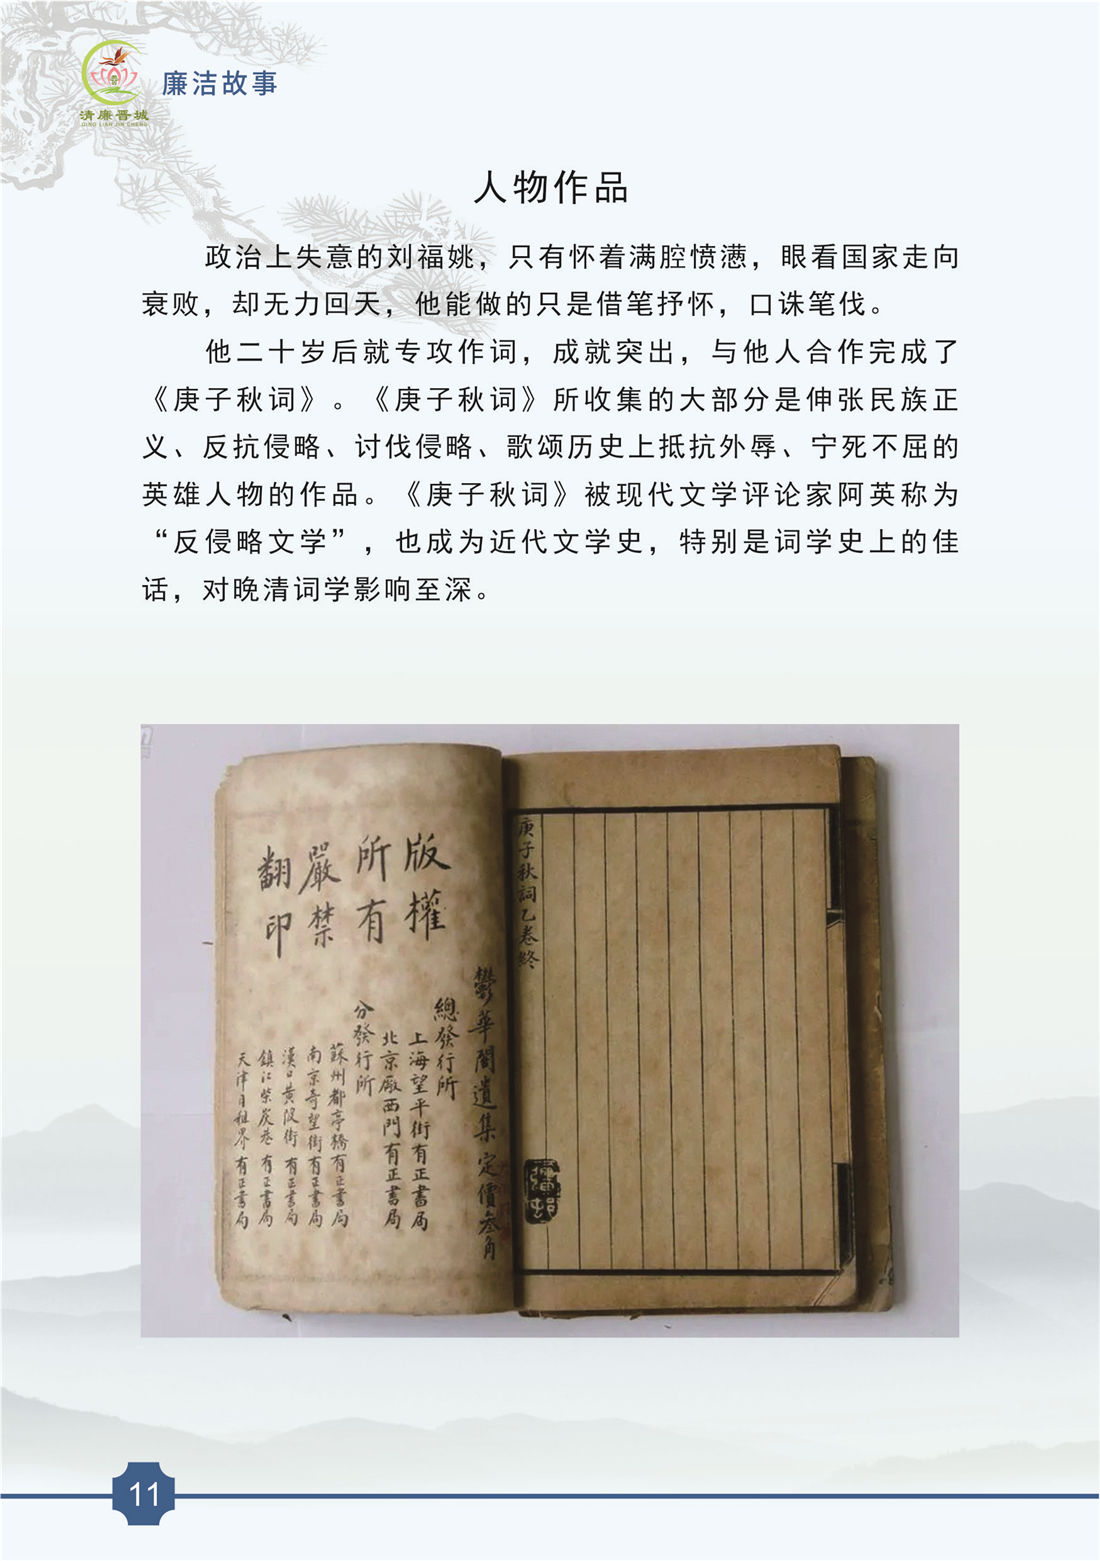 清廉晋城
QING LIAN JIN CHENG
廉洁故事
人物作品
政治上失意的刘福姚，只有怀着满腔愤懑，眼看国家走向
衰败，却无力回天，他能做的只是借笔抒怀，口诛笔伐。
他二十岁后就专攻作词，成就突出，与他人合作完成了
《庚子秋词》。《庚子秋词》所收集的大部分是伸张民族正
义、反抗侵略、讨伐侵略、歌颂历史上抵抗外辱、宁死不屈的
英雄人物的作品。《庚子秋词》被现代文学评论家阿英称为
“反侵略文学”，也成为近代文学史，特别是词学史上的佳
话，对晚清词学影响至深。
庚子秋詞乙卷終
鬱華閣遺集定價叁角
版權
所有
嚴禁
翻印
總發行所
上海望平街有正書局
北京廠西門有正書局
分發行所
蘇州都亭橋有正書局
南京奇望街有正書局
漢口黄陂街有正書局
鎮江柴炭巷有正書局
天津日租界有正書局
11